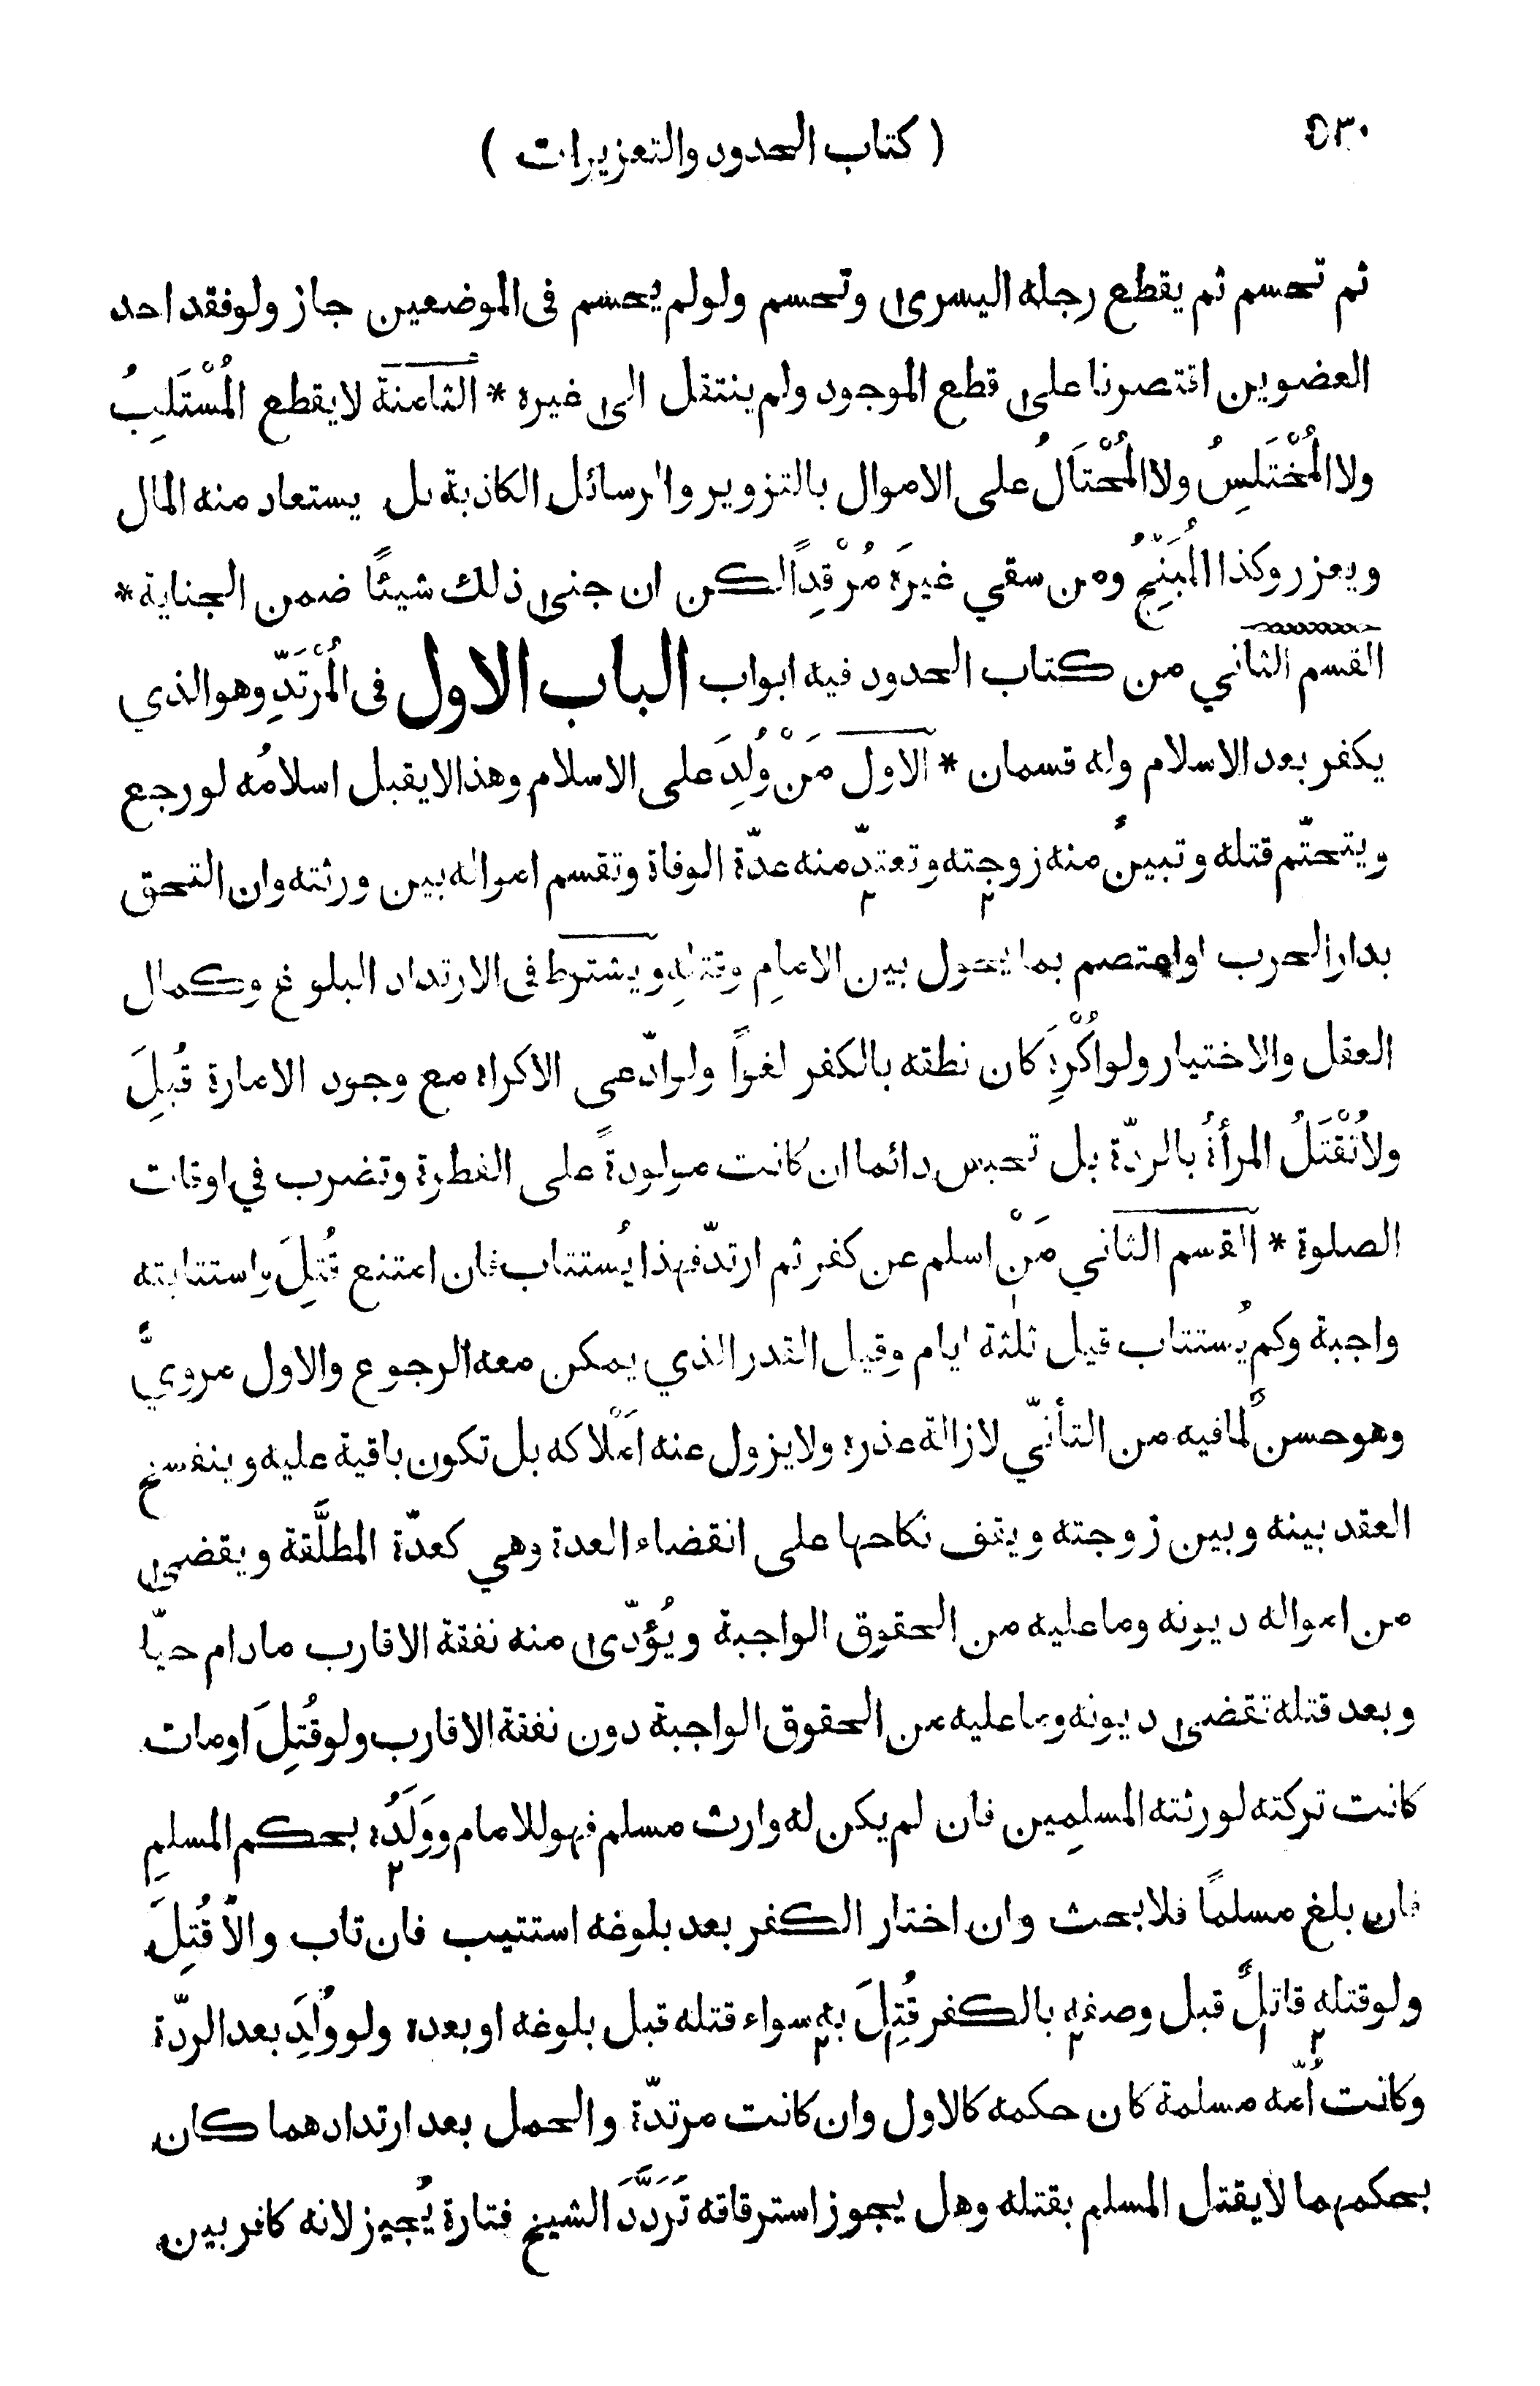 ٥٣٠
( كتاب الحدود والتعزيرات )
ثم تحسم ثم يقطع رجله اليسرى وتحسم ولولم يحسم فى الموضعين جاز ولوفقد احد
العضوين اقتصرنا على قطع الموجود ولم ينتقل الى غيره * الثامنة لايقطع المُسْتَلِبُ
ولا المُخْتَلِسُ ولا المُحْتَالُ على الاموال بالتزوير والرسائل الكاذبة بل يستعاد منه المال
ويعزر وكذا المُبَنِّجُ ومن سقي غيرَه مُرْقِدًا لكن ان جنى ذلك شيئًا ضمن الجناية *
القسم الثاني من كتاب الحدود فيه ابواب الباب الاول فى المُرْتَدِّ وهو الذي
يكفر بعد الاسلام وله قسمان * الاول مَنْ وُلِدَ على الاسلام وهذا لا يقبل اسلامُه لورجع
ويتحتّم قتله وتبينُ منه زوجته وتعتدّ منه عدّة الوفاة وتقسم امواله بين ورثته وان التحق
بدار الحرب او اعتصم بما يحول بين الامامِ وقتلِه ويشترط فى الارتداد البلوغ وكمال
العقل والاختيار ولو اُكْرِهَ كان نطقه بالكفر لغواً ولو ادّعى الاكراه مع وجود الامارة قُبِلَ
ولاتُقْتَلُ المرأةُ بالردّة بل تحبس دائما ان كانت مولودةً على الفطرة وتضرب في اوقات
الصلوة * القسم الثاني مَنْ اسلم عن كفر ثم ارتدّ فهذا يُستتاب فان امتنع قُتِلَ واستتابته
واجبة وكم يُستتاب قيل ثلثة ايام وقيل القدر الذي يمكن معه الرجوع والاول مرويٌّ
وهو حسنٌ لما فيه من التأنّي لازالة عذره ولا يزول عنه اَمْلاكه بل تكون باقية عليه وينفسخ
العقد بينه وبين زوجته ويقف نكاحها على انقضاء العدة وهي كعدّة المطلَّقة ويقضى
من امواله ديونه وما عليه من الحقوق الواجبة ويُؤدّى منه نفقة الاقارب مادام حيّا
وبعد قتله تقضى ديونه وما عليه من الحقوق الواجبة دون نفقة الاقارب ولو قُتِلَ اومات
كانت تركته لورثته المسلمِين فان لم يكن له وارث مسلم فهو للامام ووَلَدُه بحكم المسلمِ
فان بلغ مسلمًا فلا بحث وان اختار الكفر بعد بلوغه استتيب فان تاب والّا قُتِلَ
ولو قتله قاتلٌ قبل وصفه بالكفر قُتِلَ به سواء قتله قبل بلوغه او بعده ولو وُلِدَ بعد الردّة
وكانت اُمّه مسلمة كان حكمه كالاول وان كانت مرتدّة والحمل بعد ارتدادهما كان
بحكمهما لا يقتل المسلم بقتله وهل يجوز استرقاقه تَرَدَّدَ الشيخ فتارة يُجيز لانه كافر بين